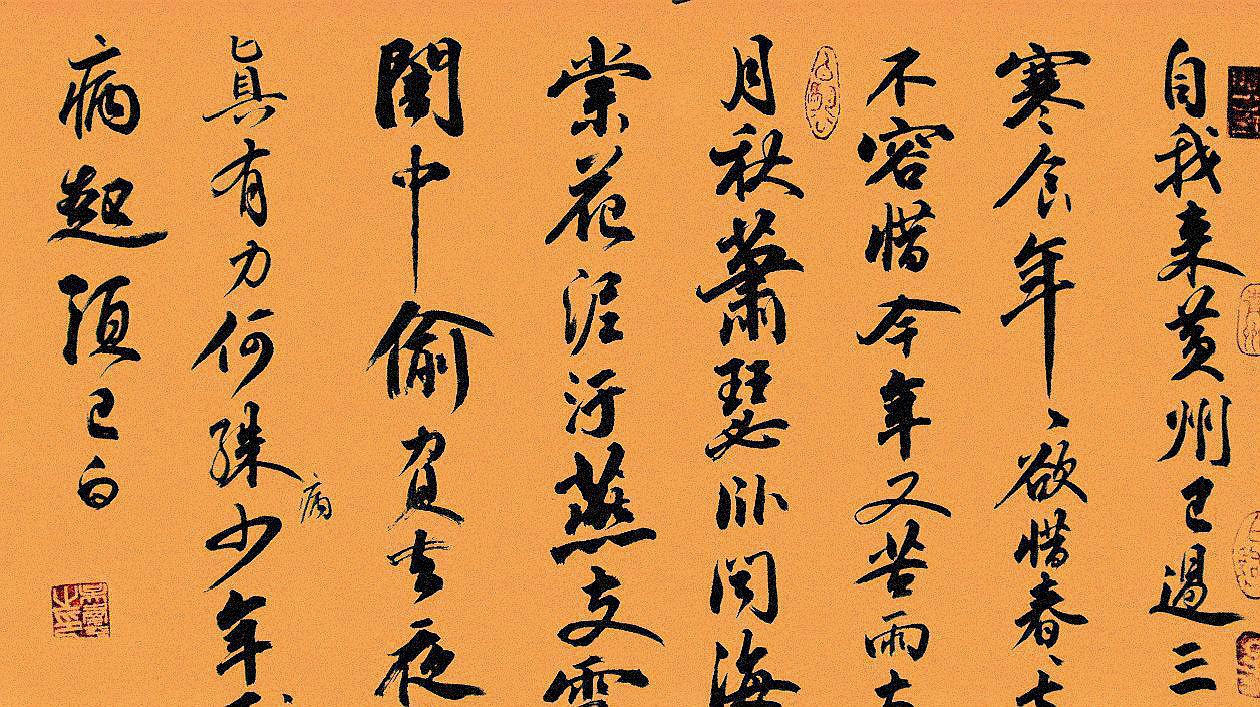 自我来黄州已過三
寒食年、欲惜春、
不容惜今年又苦雨
月秋蕭瑟卧聞海
棠花泥汙燕支雪
闇中偷負去夜
真有力何殊少年
病
病起須已白